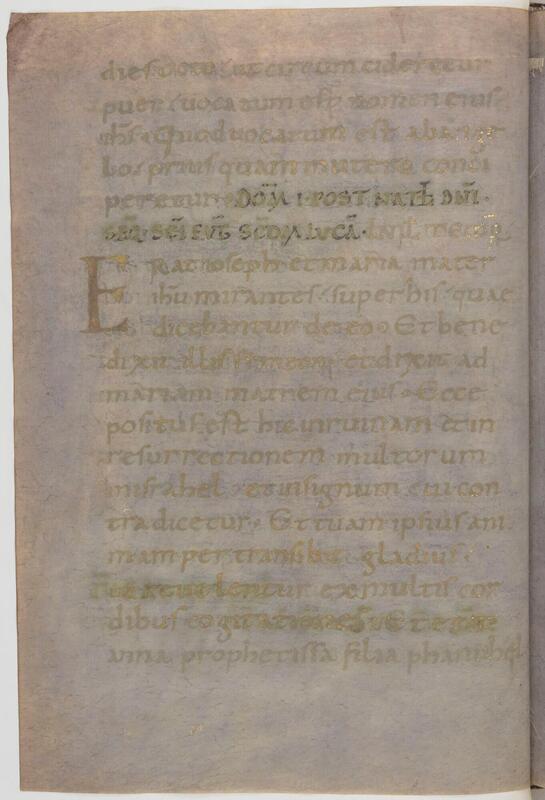 dies octo ut circumcideretur
puer vocatum est nomen eius
ihs. Quod vocatum est ab ange
lo. prius quam in utero conci
peretur. DOM I POST NATL DNI.
SEQ SCI EVG SCDM LUCA.
ERAT ioseph et maria mater
ihu mirantes. super his quae
dicebantur de eo. Et bene
dixit illis simeon. et dixit ad
mariam matrem eius. Ecce
positus est hic in ruinam et in
resurrectionem multorum
in israhel. et in signum cui con
tradicetur. Et tuam ipsius ani
mam pertransibit gladius.
ut revelentur ex multis cor
dibus cogitationes. Et erat
anna prophetissa filia phanuhel